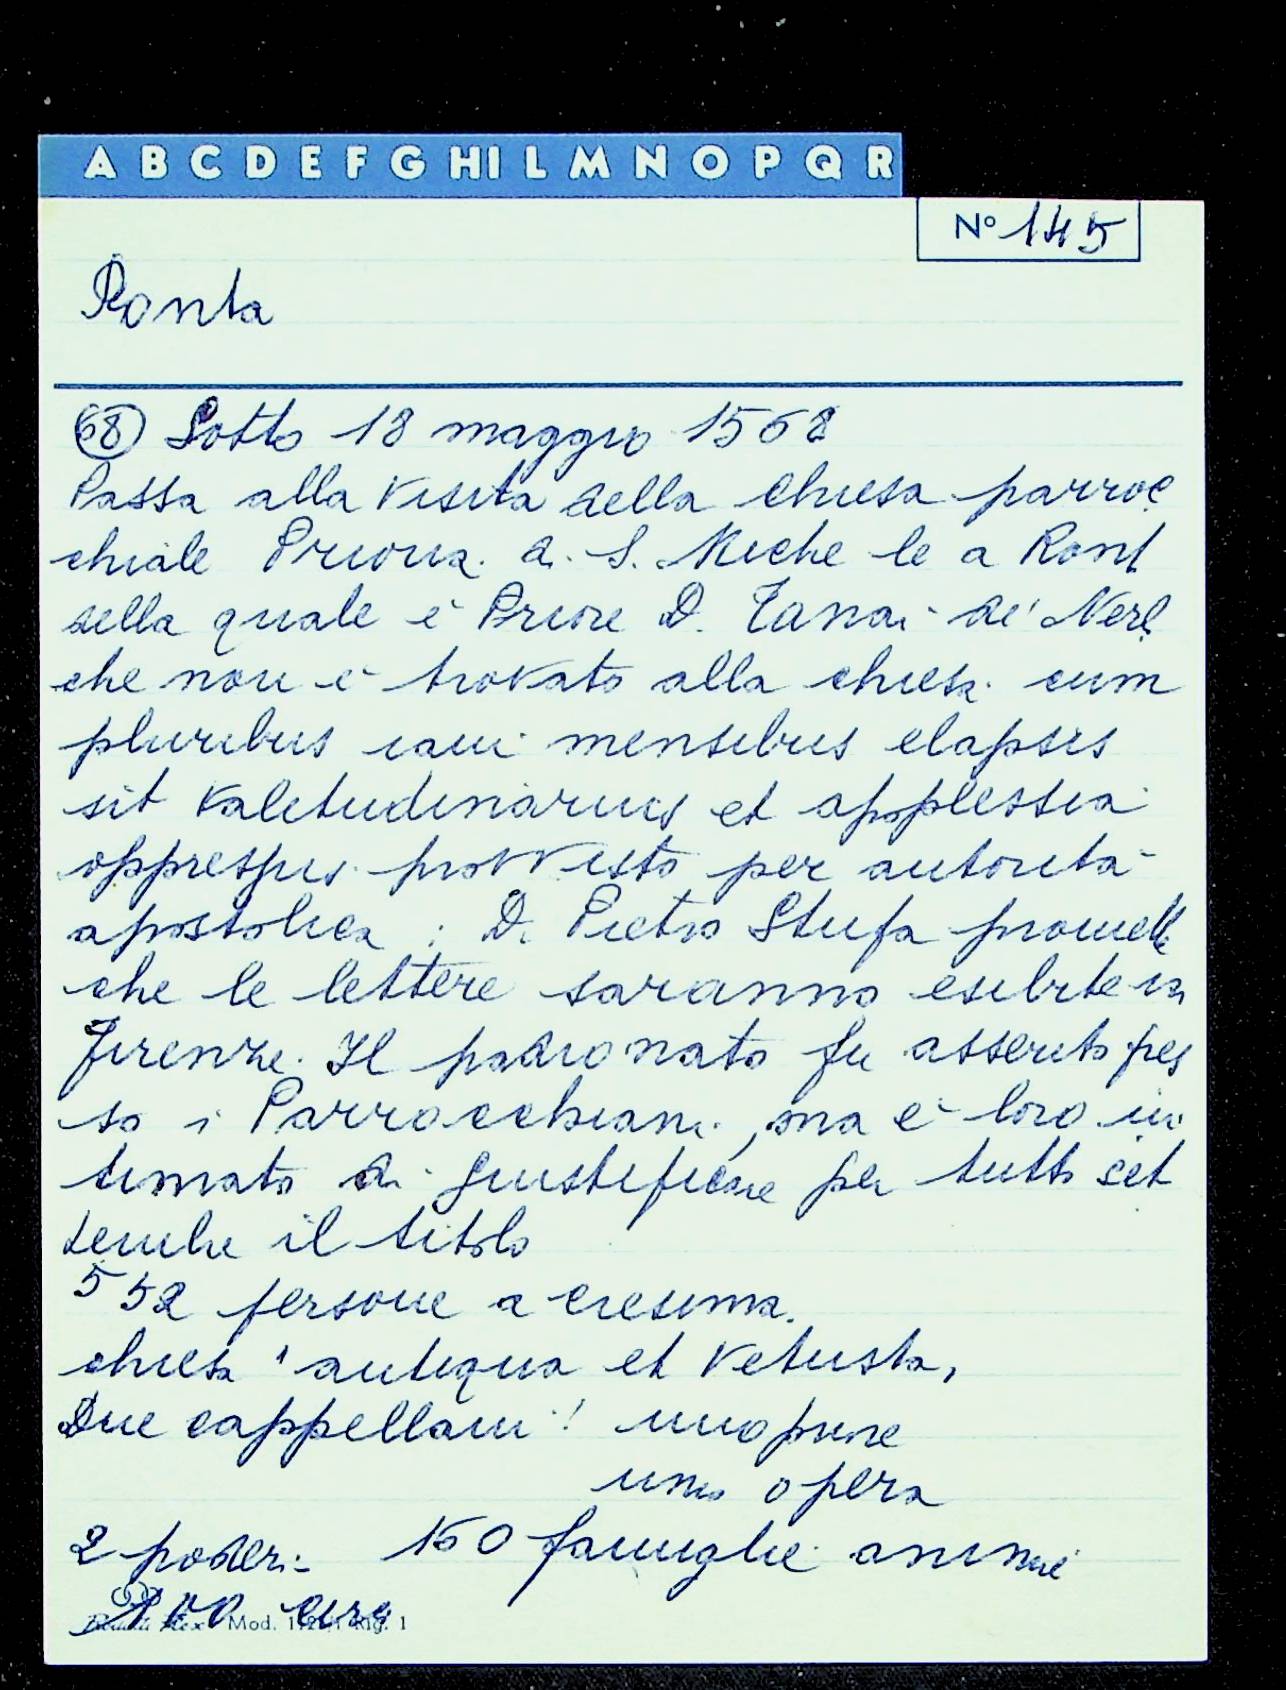 A B C D E F G HI L M N O P Q R
Nº 145
Ronta
68 Sotto 18 maggio 1568
Passa alla visita della chiesa parroc
chiale Prioria di S. Miche le a Ront
della quale è Priore D. Tanai de' Nerl
che non è trovato alla chiesa cum
pluribus iam mensibus elapsis
sit valetudinarius et applessia
oppressus provvisto per autorità
apostolica : D. Pietro Stufa promette
che le lettere saranno esibite in
Firenze. Il padronato fu asserito pres
so i Parrocchiani, ma è loro in
timato di giustificare per tutto set
tembre il titolo
552 persone a cresima.
chiesa antiqua et vetusta,
Due cappellani ! uno priore
uno opera
2 poderi 150 famiglie anime
Mod. Rig. 1